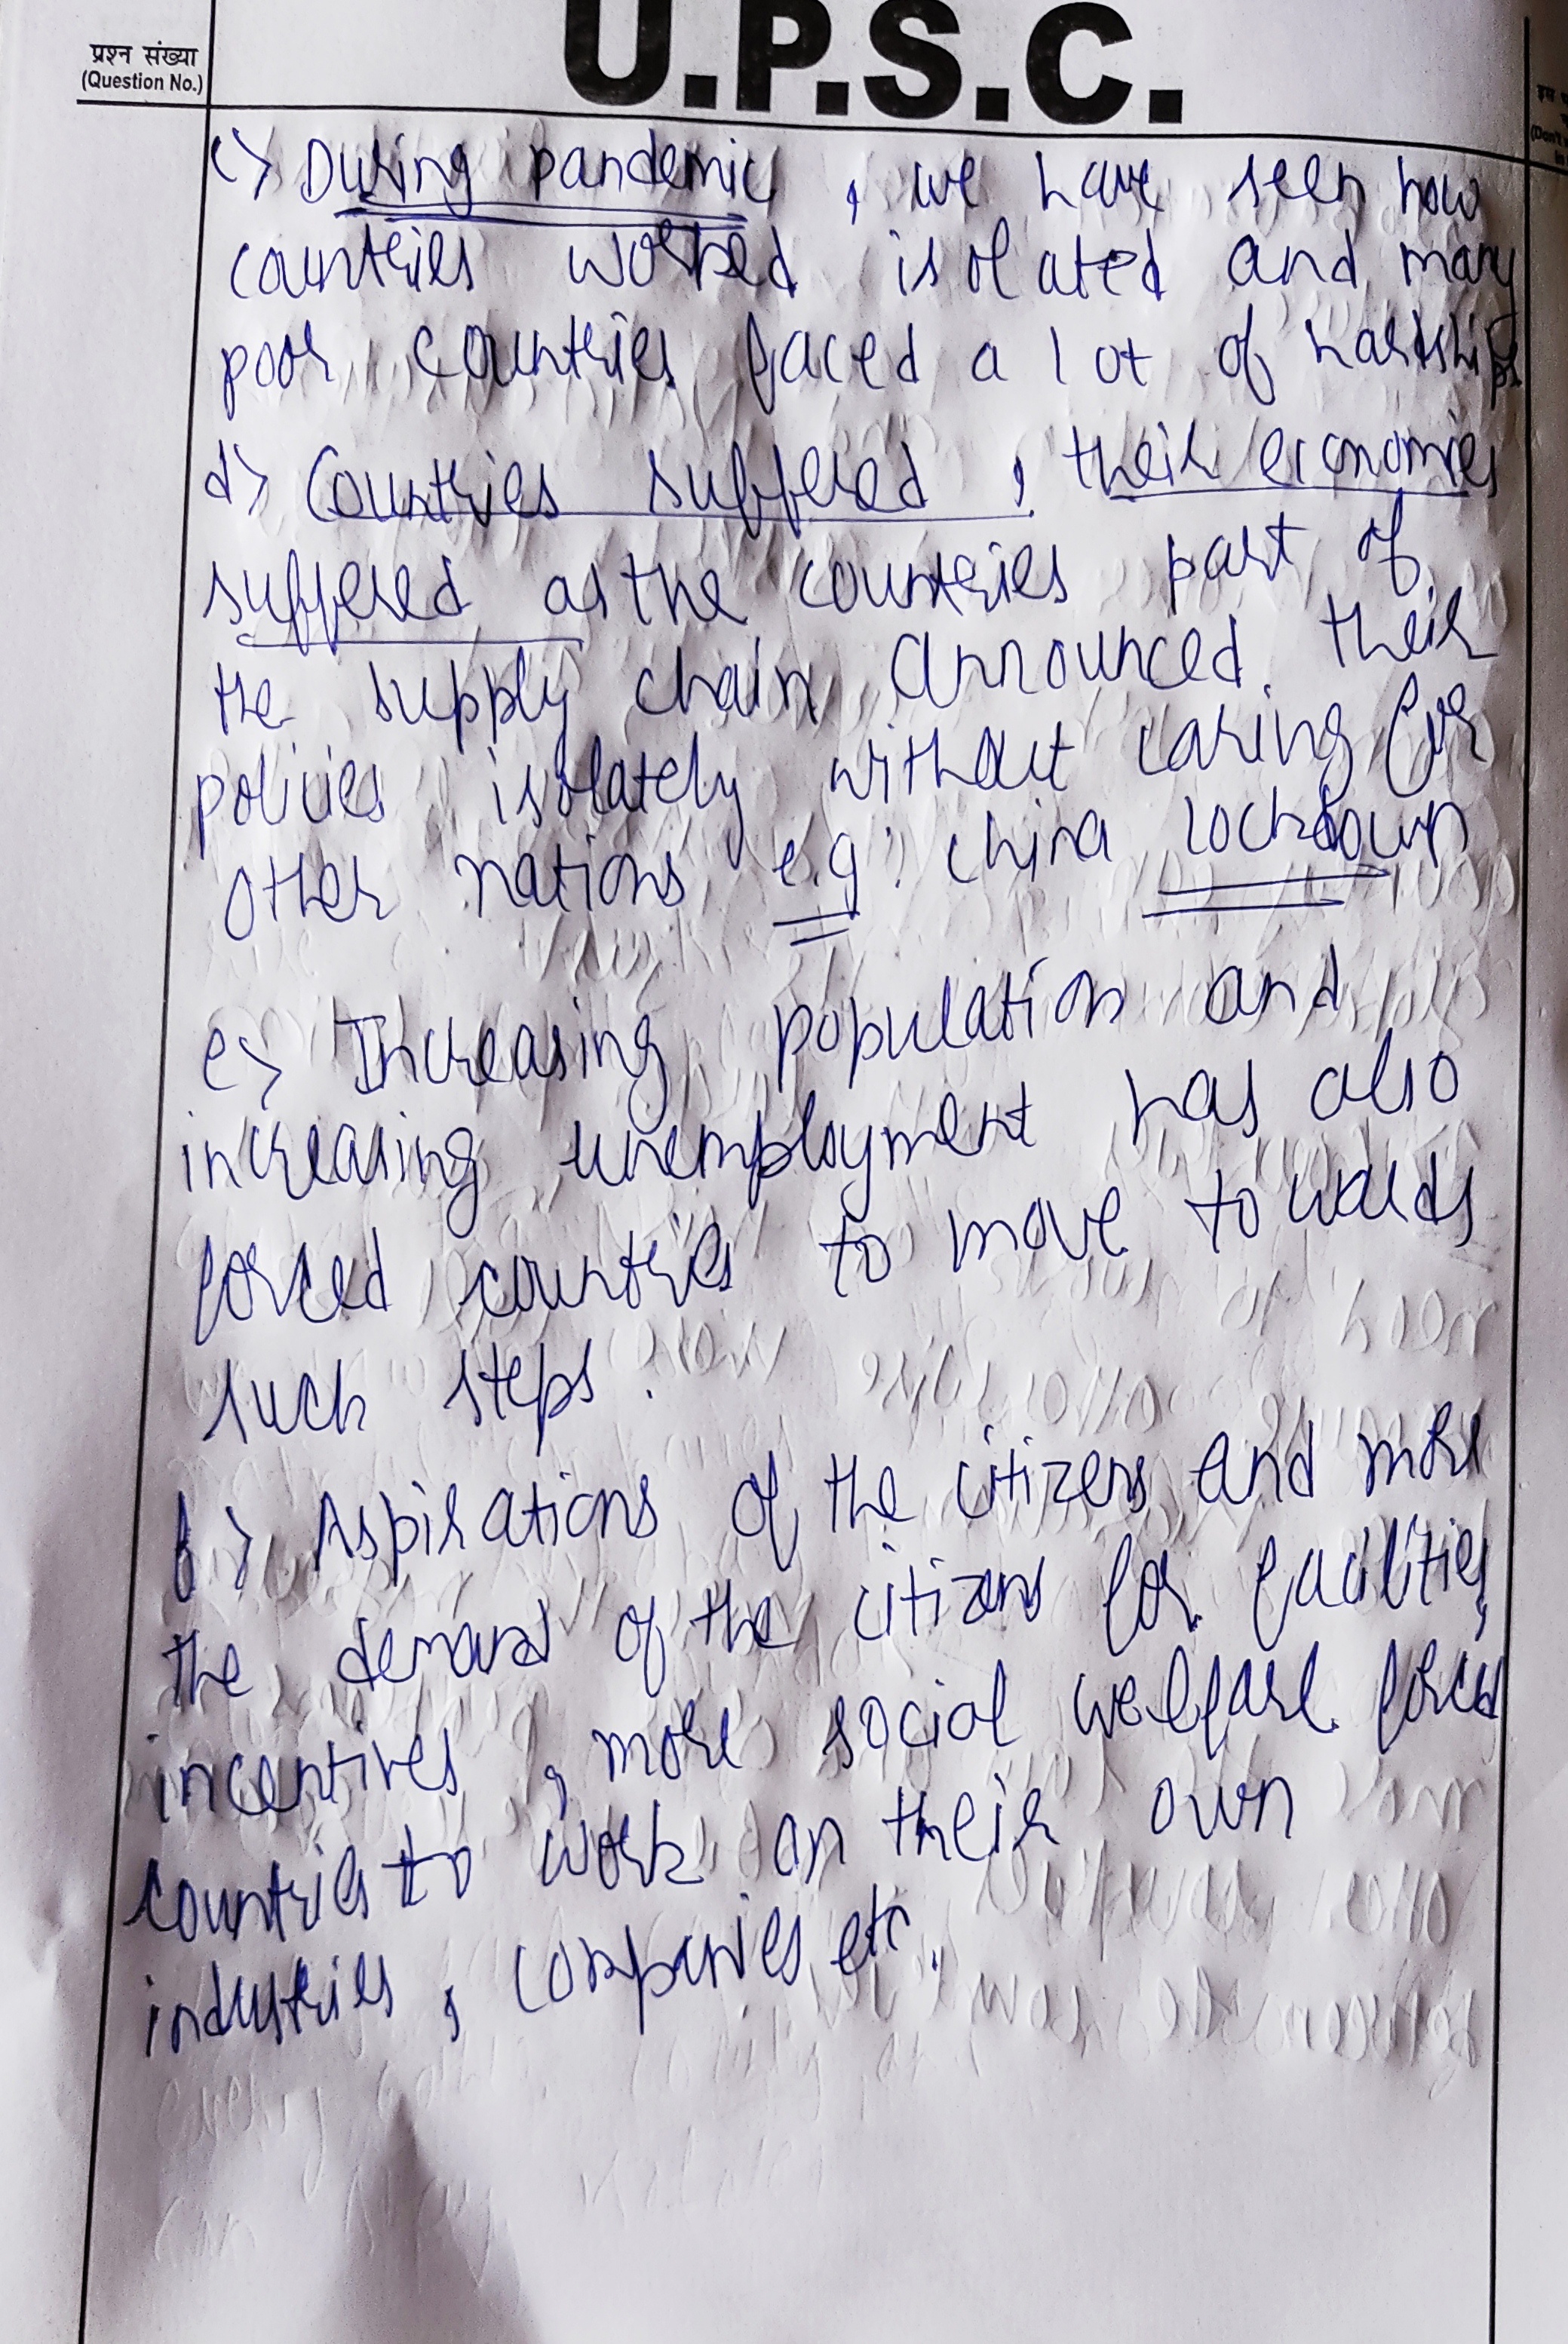 U.P.S.C.
प्रश्न संख्या
(Question No.)
c) During pandemic, we have seen how
countries worked isolated and many
poor countries faced a lot of hardships
d) Countries suffered, their economies
suffered as the countries part of
the supply chain announced their
policies isolately without caring for
other nations e.g: china lockdown
e) Increasing population and
increasing unemployment has also
forced countries to move towards
such steps.
f) Aspirations of the citizens and more
the demand of the citizens for facilities,
incentives, more social welfare forced
countries to work on their own
industries, companies etc.